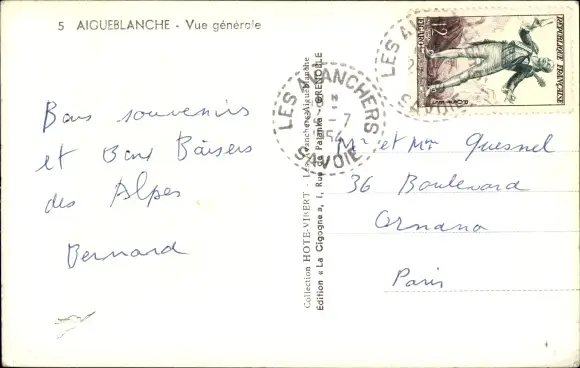 5 AIGUEBLANCHE - Vue générale
Bons souvenirs
et Bons Baisers
des Alpes
Bernard
Collection HOTE-VIBERT - Les Avanchers-Aigueblanche
Édition « La Cigogne », 1, Rue de Palanka - GRENOBLE
LES AVANCHERS
-7
54
SAVOIE
LES AV
SAVOIE
12F
REPUBLIQUE FRANÇAISE
POSTES
Mr et Mme Quesnel
36 Boulevard
Ornano
Paris